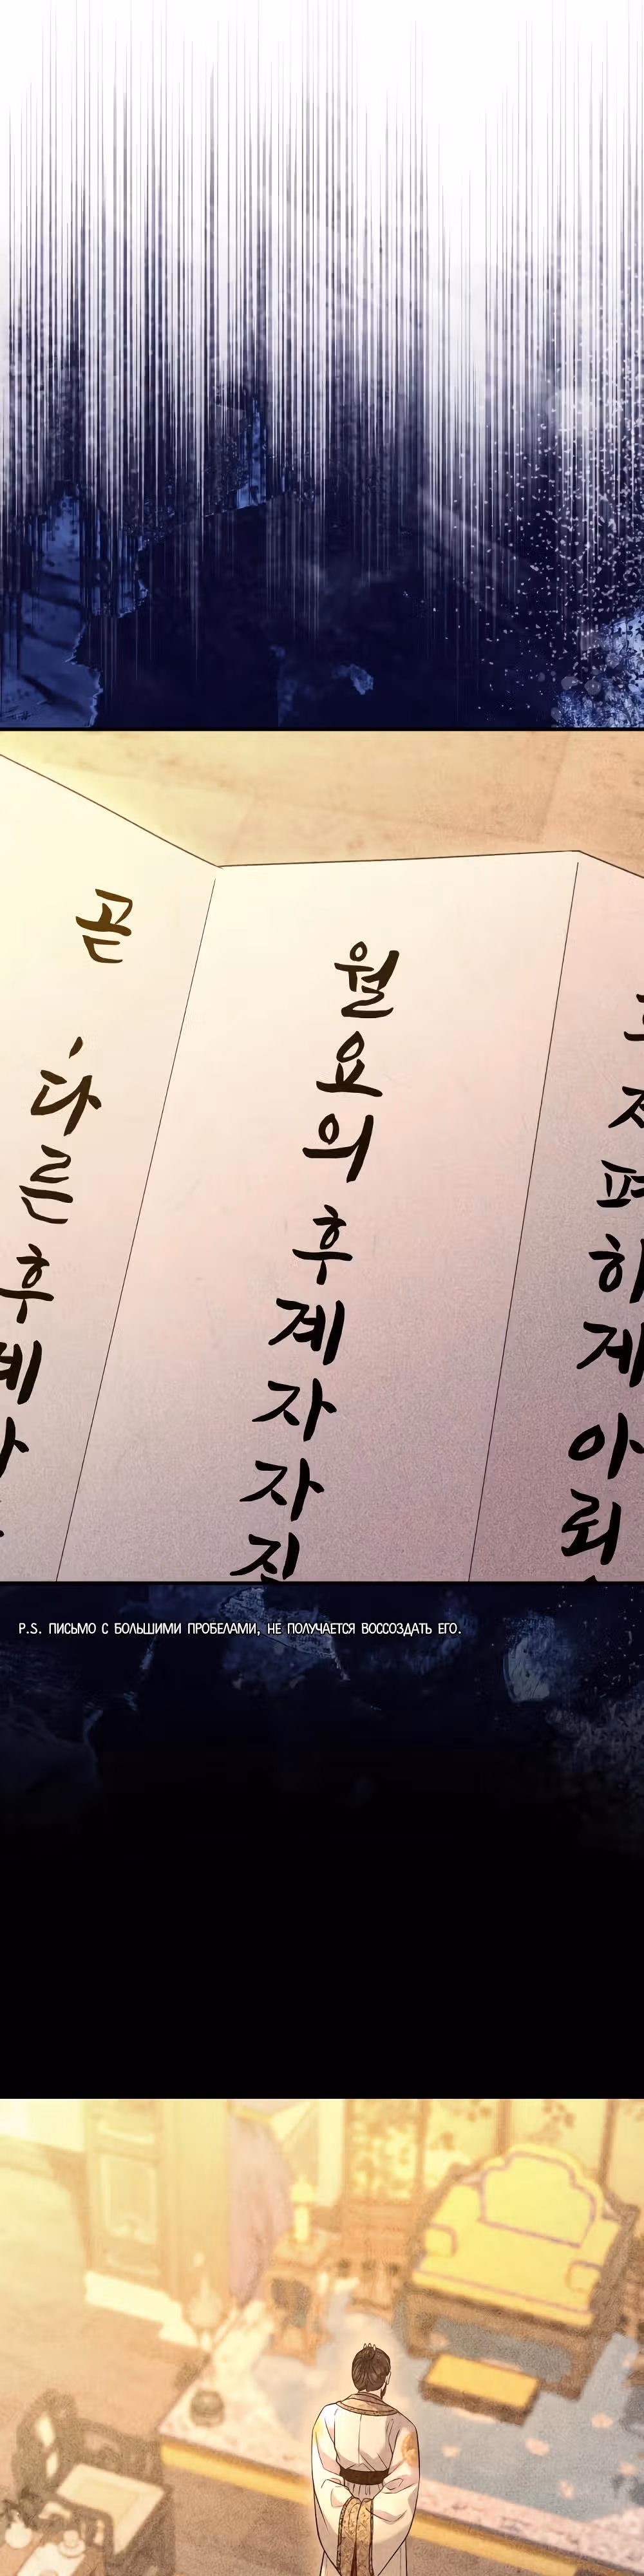 곧
다른 후계자
월요의 후계자 자진
저하게 아뢰
P.S. ПИСЬМО С БОЛЬШИМИ ПРОБЕЛАМИ, НЕ ПОЛУЧАЕТСЯ ВОССОЗДАТЬ ЕГО.